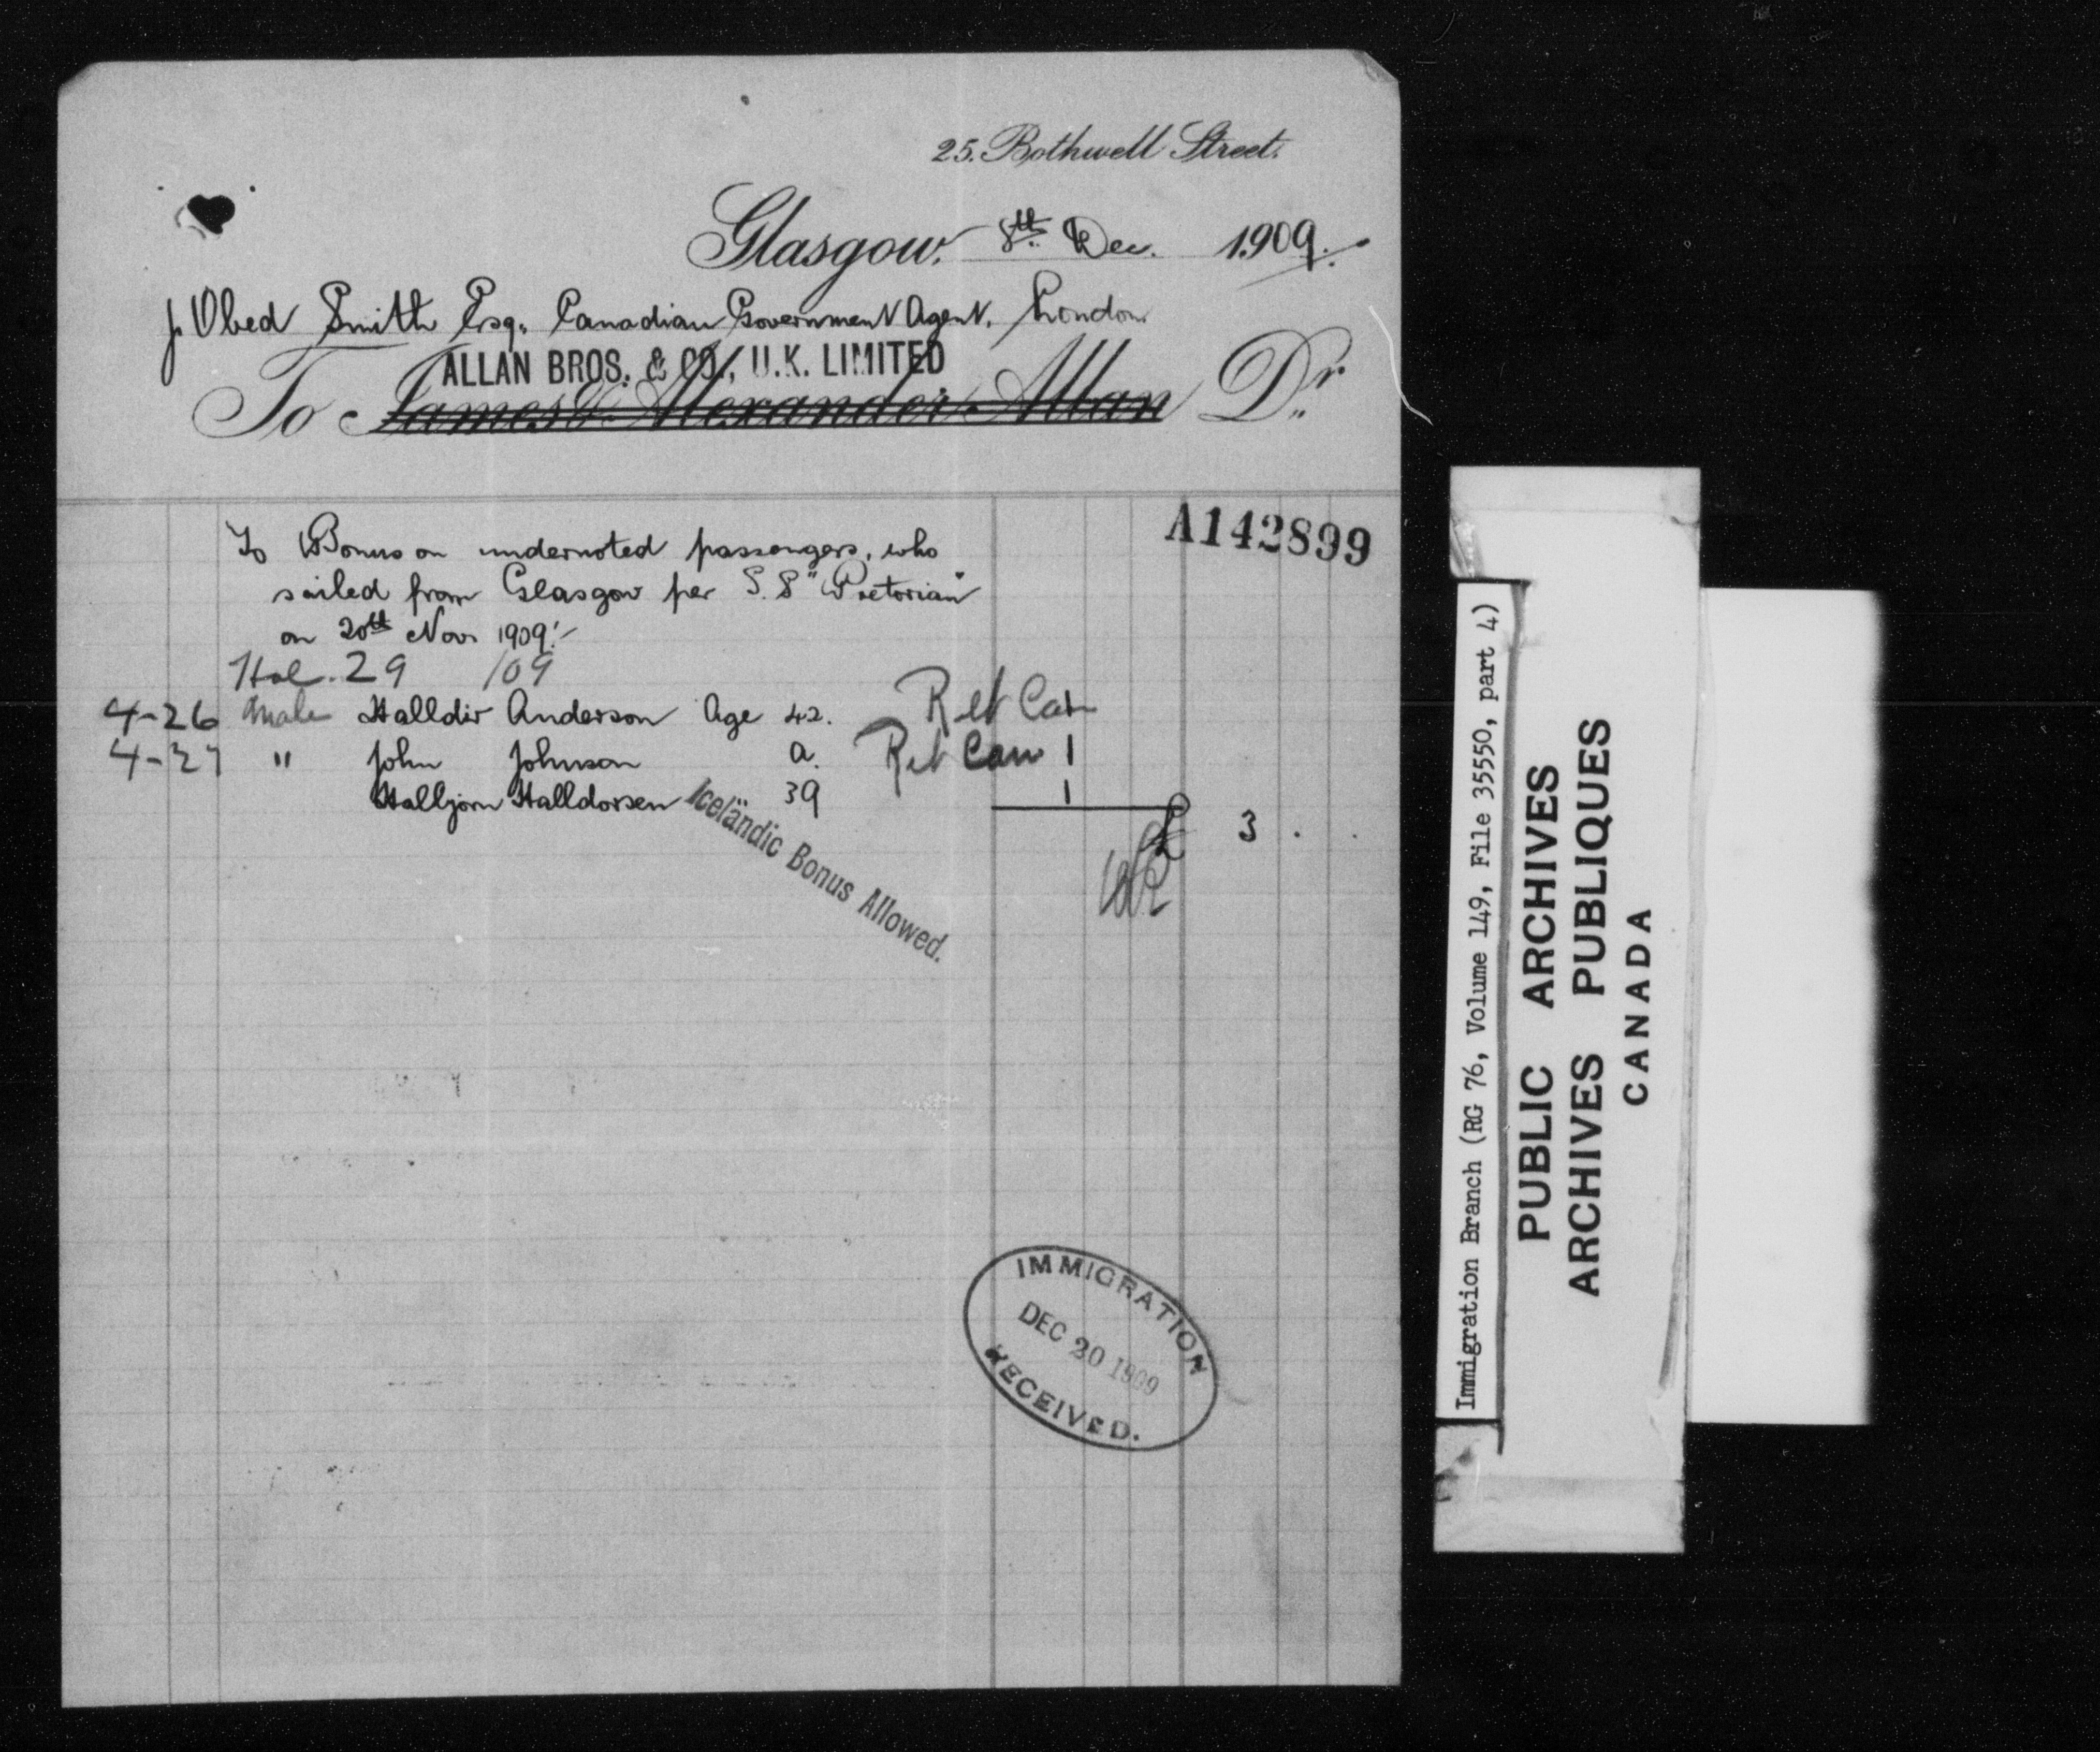 25. Bothwell Street.
Glasgow. 8th Dec. 1909.
J. Obed Smith Esq. Canadian Government Agent, London
ALLAN BROS. & CO., U.K. LIMITED
To James & Alexander Allan Dr.
A142899
To Bonus on undernoted passengers, who
sailed from Glasgow per S.S "Pretorian"
on 20th Nov 1909:-
Hal. 29 /09
4-26 Male Halldir Anderson Age 42. Ret Can 1
4-27 " John Johnson a. Ret Can 1
Halbjorn Halldorsen 39 1
£ 3 . .
Icelandic Bonus Allowed.
IMMIGRATION
DEC 20 1909
RECEIVED.
Immigration Branch (RG 76, Volume 149, File 35550, part 4)
PUBLIC ARCHIVES
ARCHIVES PUBLIQUES
CANADA